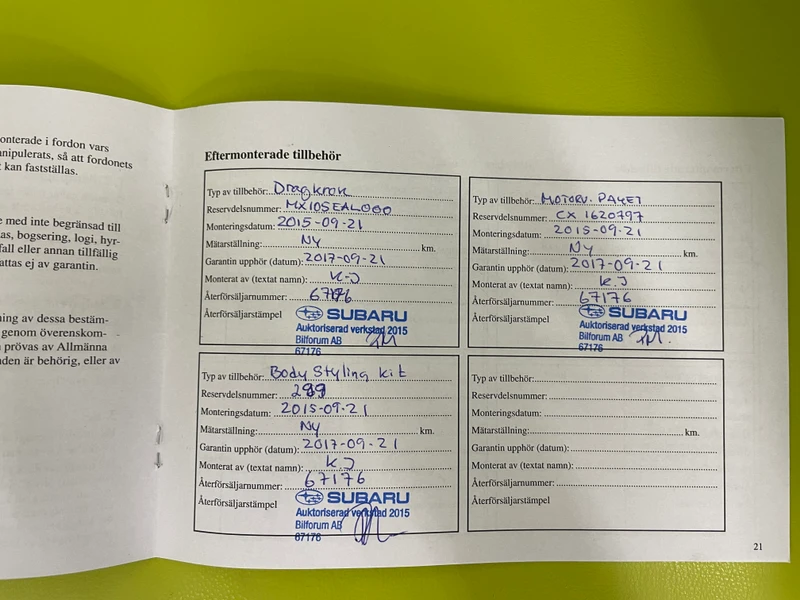 onterade i fordon vars
nipulerats, så att fordonets
t kan fastställas.
e med inte begränsad till
as, bogsering, logi, hyr-
fall eller annan tillfällig
attas ej av garantin.
ning av dessa bestäm-
genom överenskom-
prövas av Allmänna
nden är behörig, eller av
Eftermonterade tillbehör
Typ av tillbehör: Dragkrok
Reservdelsnummer: MX10SEAL000
Monteringsdatum: 2015-09-21
Mätarställning: Ny km.
Garantin upphör (datum): 2017-09-21
Monterat av (textat namn): K-J
Återförsäljarnummer: 67176
Återförsäljarstämpel
SUBARU
Auktoriserad verkstad 2015
Bilforum AB
67176
Typ av tillbehör: MOTORV. PAKET
Reservdelsnummer: CX 1620797
Monteringsdatum: 2015-09-21
Mätarställning: Ny km.
Garantin upphör (datum): 2017-09-21
Monterat av (textat namn): K.J
Återförsäljarnummer: 67176
Återförsäljarstämpel
SUBARU
Auktoriserad verkstad 2015
Bilforum AB
67176
Typ av tillbehör: Body Styling kit
Reservdelsnummer:
Monteringsdatum: 2015-09-21
Mätarställning: Ny km.
Garantin upphör (datum): 2017-09-21
Monterat av (textat namn): K.J
Återförsäljarnummer: 67176
Återförsäljarstämpel
SUBARU
Auktoriserad verkstad 2015
Bilforum AB
67176
Typ av tillbehör:
Reservdelsnummer:
Monteringsdatum:
Mätarställning: km.
Garantin upphör (datum):
Monterat av (textat namn):
Återförsäljarnummer:
Återförsäljarstämpel
21